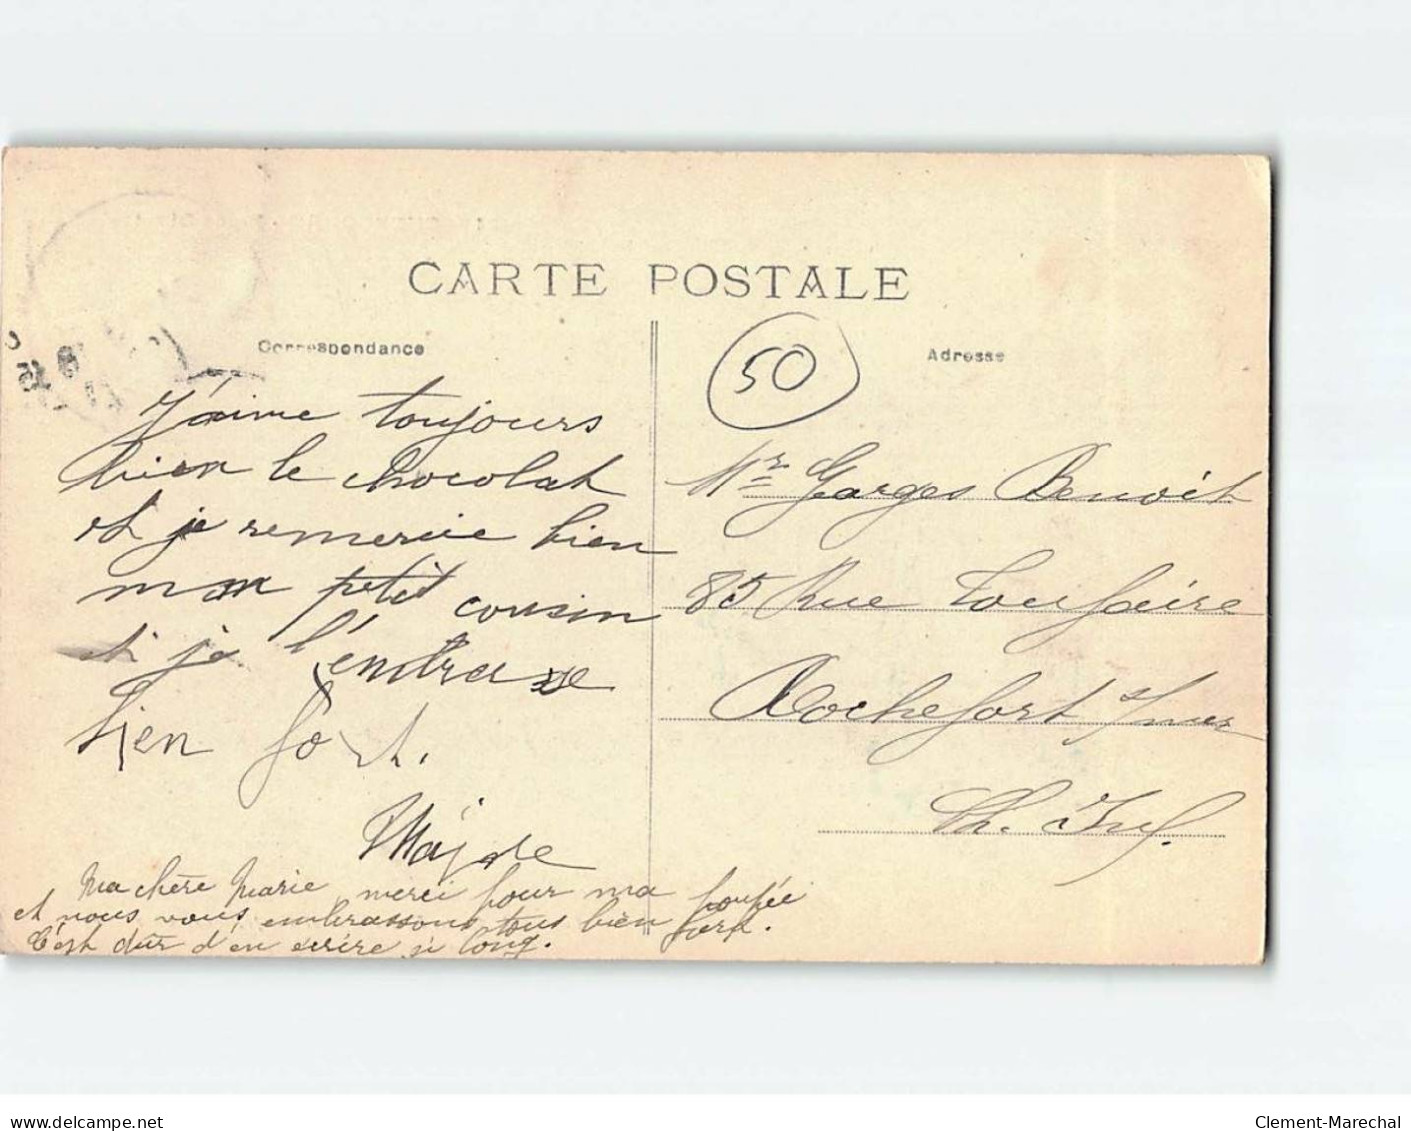 CARTE POSTALE
Correspondance
Adresse
50
J'aime toujours
bien le chocolat
et je remercie bien
mon petit cousin
et je l'embrasse
bien fort.
Ma chère Marie merci pour ma poupée
et nous vous embrassons tous bien fort.
C'est dur d'en écrire si long.
Mr Georges Benoit
85 Rue Toufaire
Rochefort s/mer
Ch. Inf.
delcampe.net
Clement-Marechal